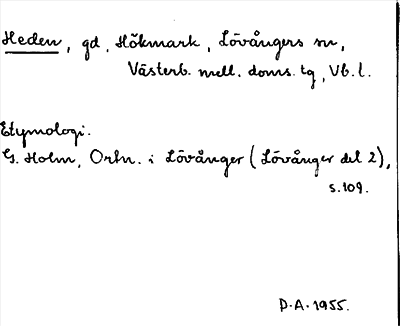 Heden, gd, Hökmark, Lövångers sn,
Västerb. mell. doms. tg, Vb. l.
Etymologi.
G. Holm, Ortn. i Lövånger (Lövånger del 2),
s. 109.
D.A. 1955.